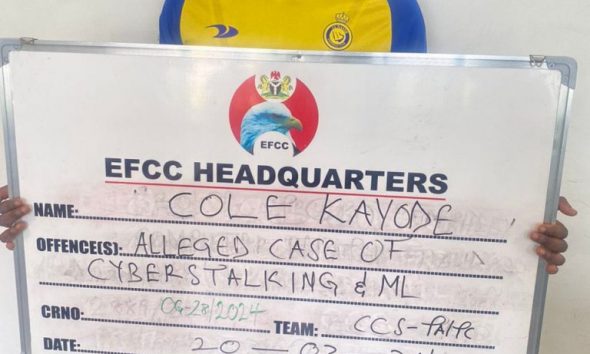 EFCC
EFCC HEADQUARTERS
NAME: COLE KAYODE
OFFENCE(S): ALLEGED CASE OF
CYBERSTALKING & ML
CRNO: CG-28/2024
TEAM: CCS-
DATE: 20-03-